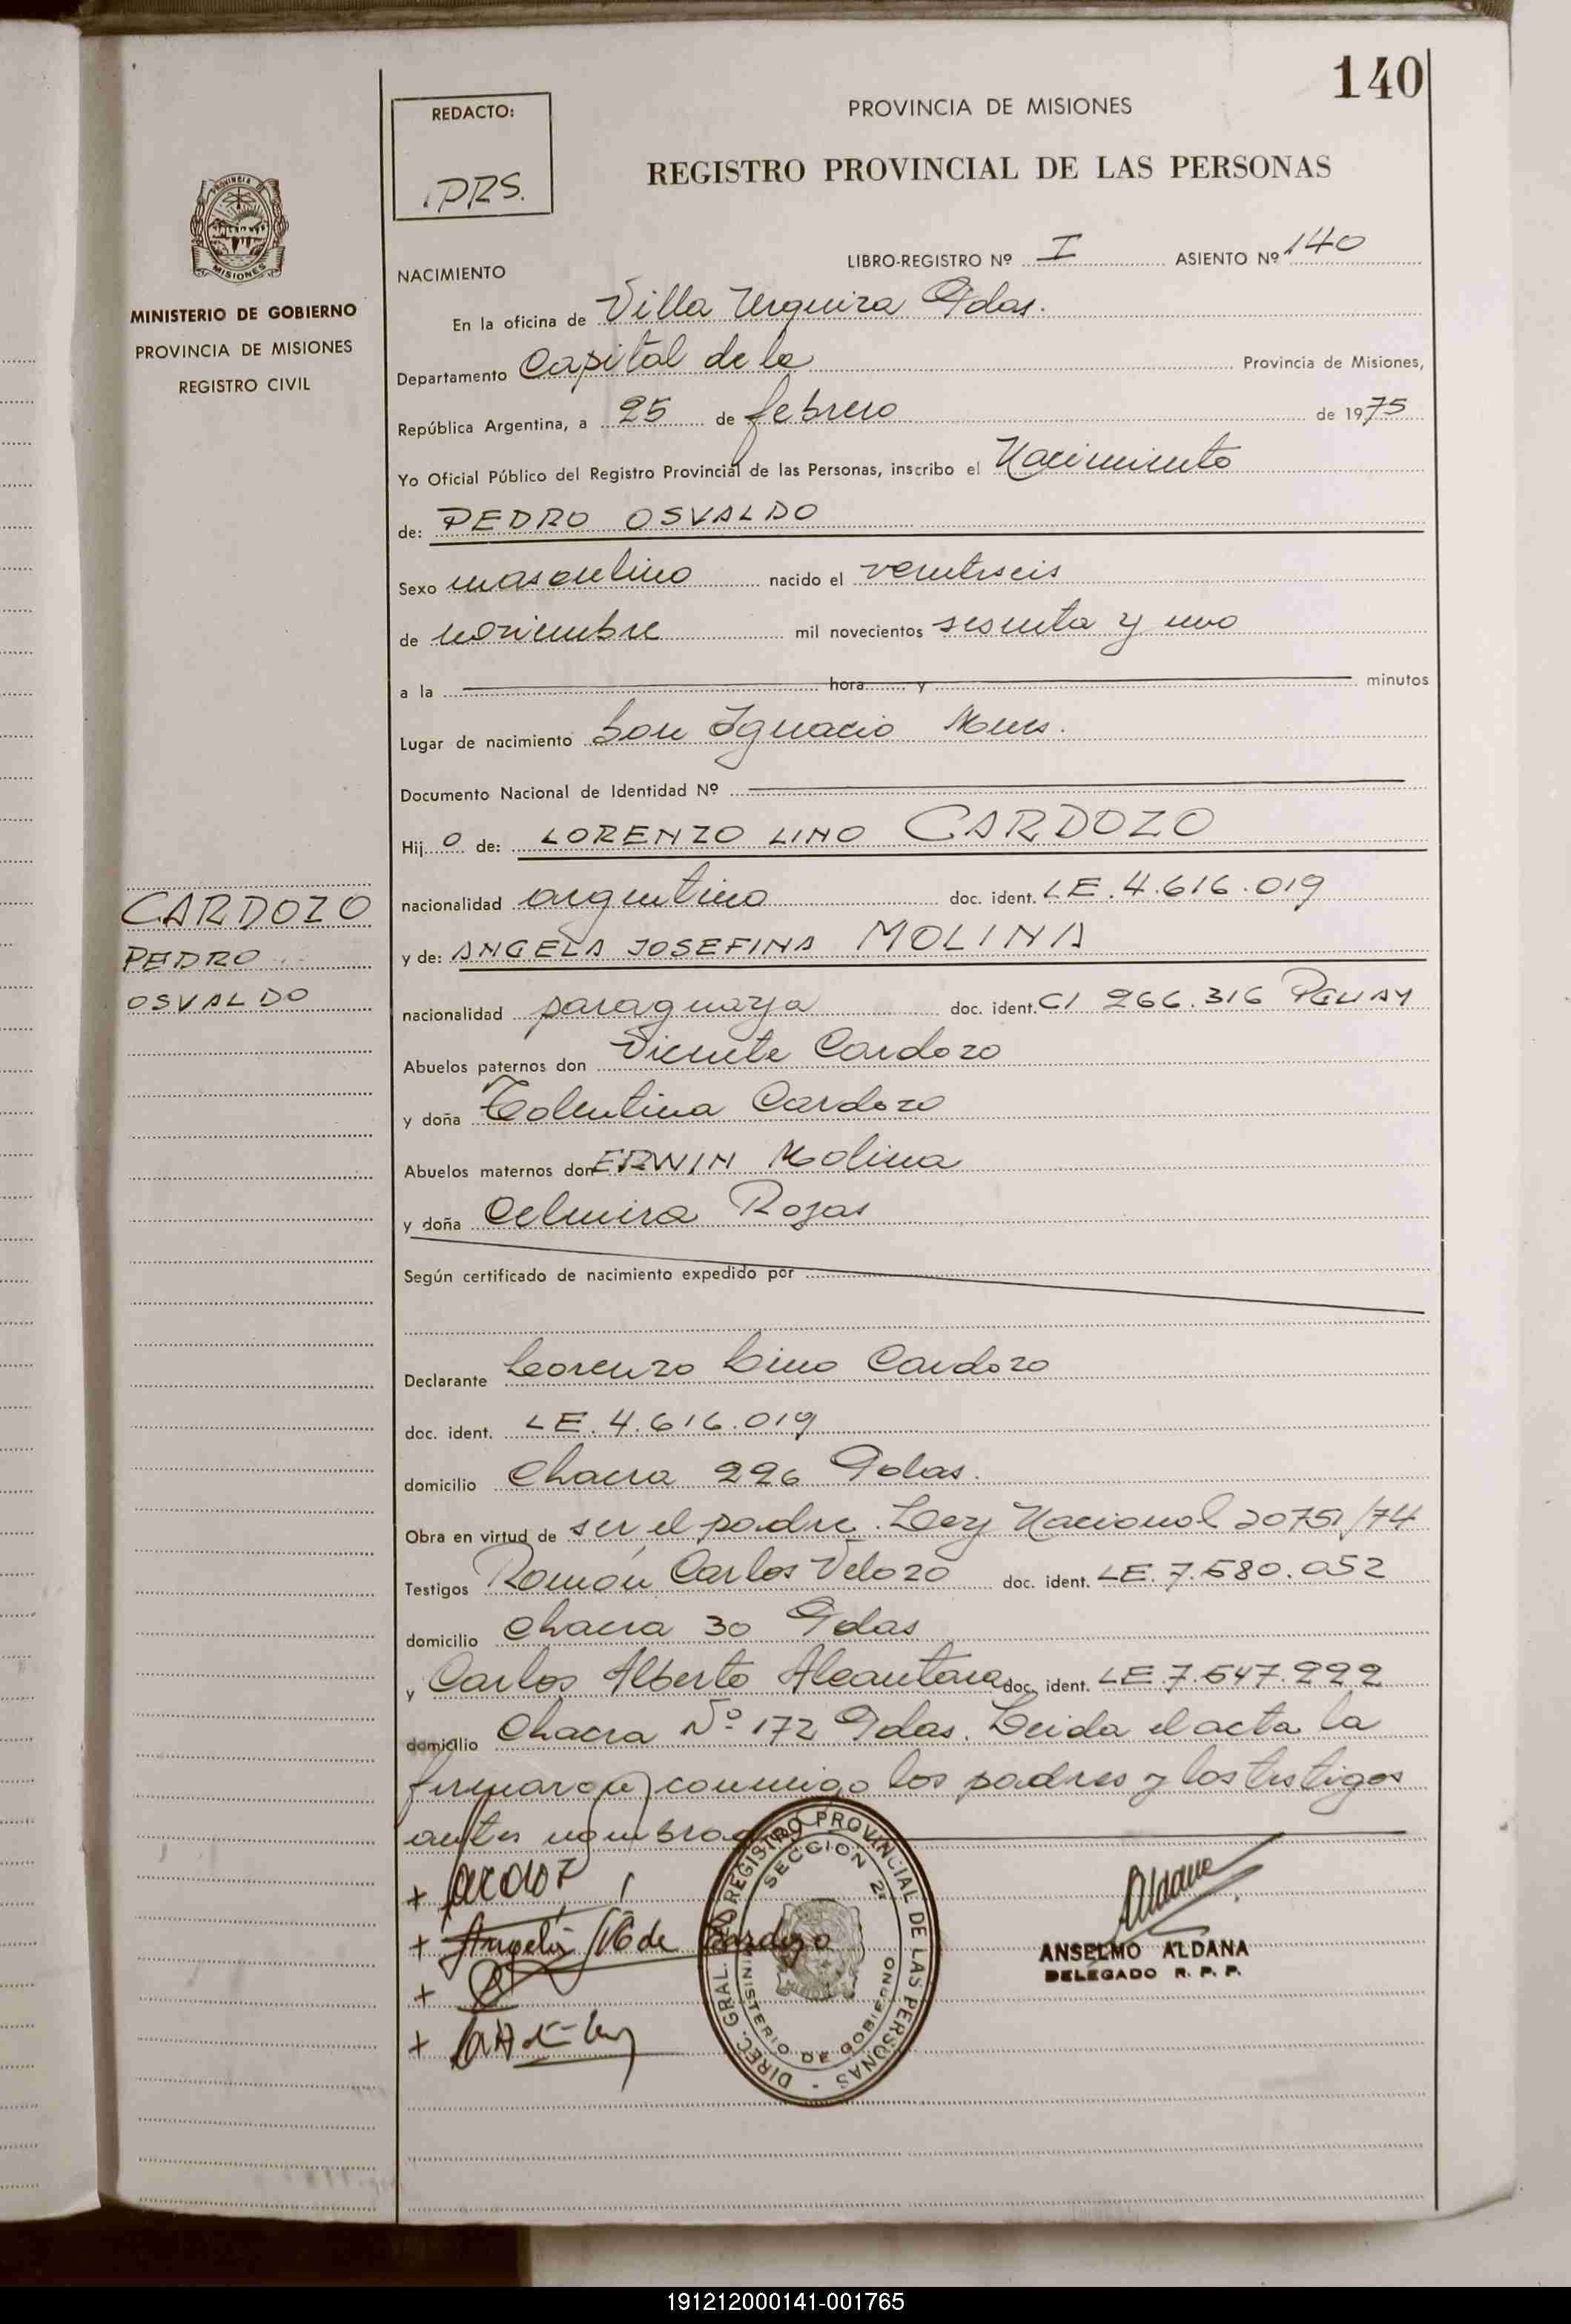 140
REDACTO:
PRS.
PROVINCIA DE MISIONES
REGISTRO PROVINCIAL DE LAS PERSONAS
PROVINCIA DE
MISIONES
MINISTERIO DE GOBIERNO
PROVINCIA DE MISIONES
REGISTRO CIVIL
NACIMIENTO
LIBRO-REGISTRO Nº I ASIENTO Nº 140
En la oficina de Villa Urquiza Pdas.
Departamento Capital de la Provincia de Misiones,
República Argentina, a 25 de febrero de 1975
Yo Oficial Público del Registro Provincial de las Personas, inscribo el Nacimiento
de: PEDRO OSVALDO
Sexo masculino nacido el veintiseis
de noviembre mil novecientos sesenta y uno
a la hora y minutos
Lugar de nacimiento San Ignacio Mnes.
Documento Nacional de Identidad Nº
Hij o de: LORENZO LINO CARDOZO
CARDOZO
PEDRO
OSVALDO
nacionalidad argentino doc. ident. LE. 4.616.019
y de: ANGELA JOSEFINA MOLINA
nacionalidad paraguaya doc. ident. CI 266.316 PGUAY
Abuelos paternos don Vicente Cardozo
y doña Tolentina Cardozo
Abuelos maternos don ERWIN Molina
y doña Celmira Rojas
Según certificado de nacimiento expedido por
Declarante Lorenzo Lino Cardozo
doc. ident. LE. 4.616.019
domicilio Chacra 226 Pdas.
Obra en virtud de ser el padre. Ley Nacional 20751/74
Testigos Ramón Carlos Velozo doc. ident. LE. 7.580.052
domicilio Chacra 30 Pdas
y Carlos Alberto Alcantara doc. ident. LE 7.547.222
domicilio Chacra Nº 172 Pdas. Leida el acta la
firmaron conmigo los padres y los testigos
antes nombrados
+
+ Angela M de Cardozo
+
+
DIREC. GRAL. DEL REGISTRO PROVINCIAL DE LAS PERSONAS -
SECCION 2ª
MINISTERIO DE GOBIERNO
Aldana
ANSELMO ALDANA
DELEGADO R. P. P.
191212000141-001765